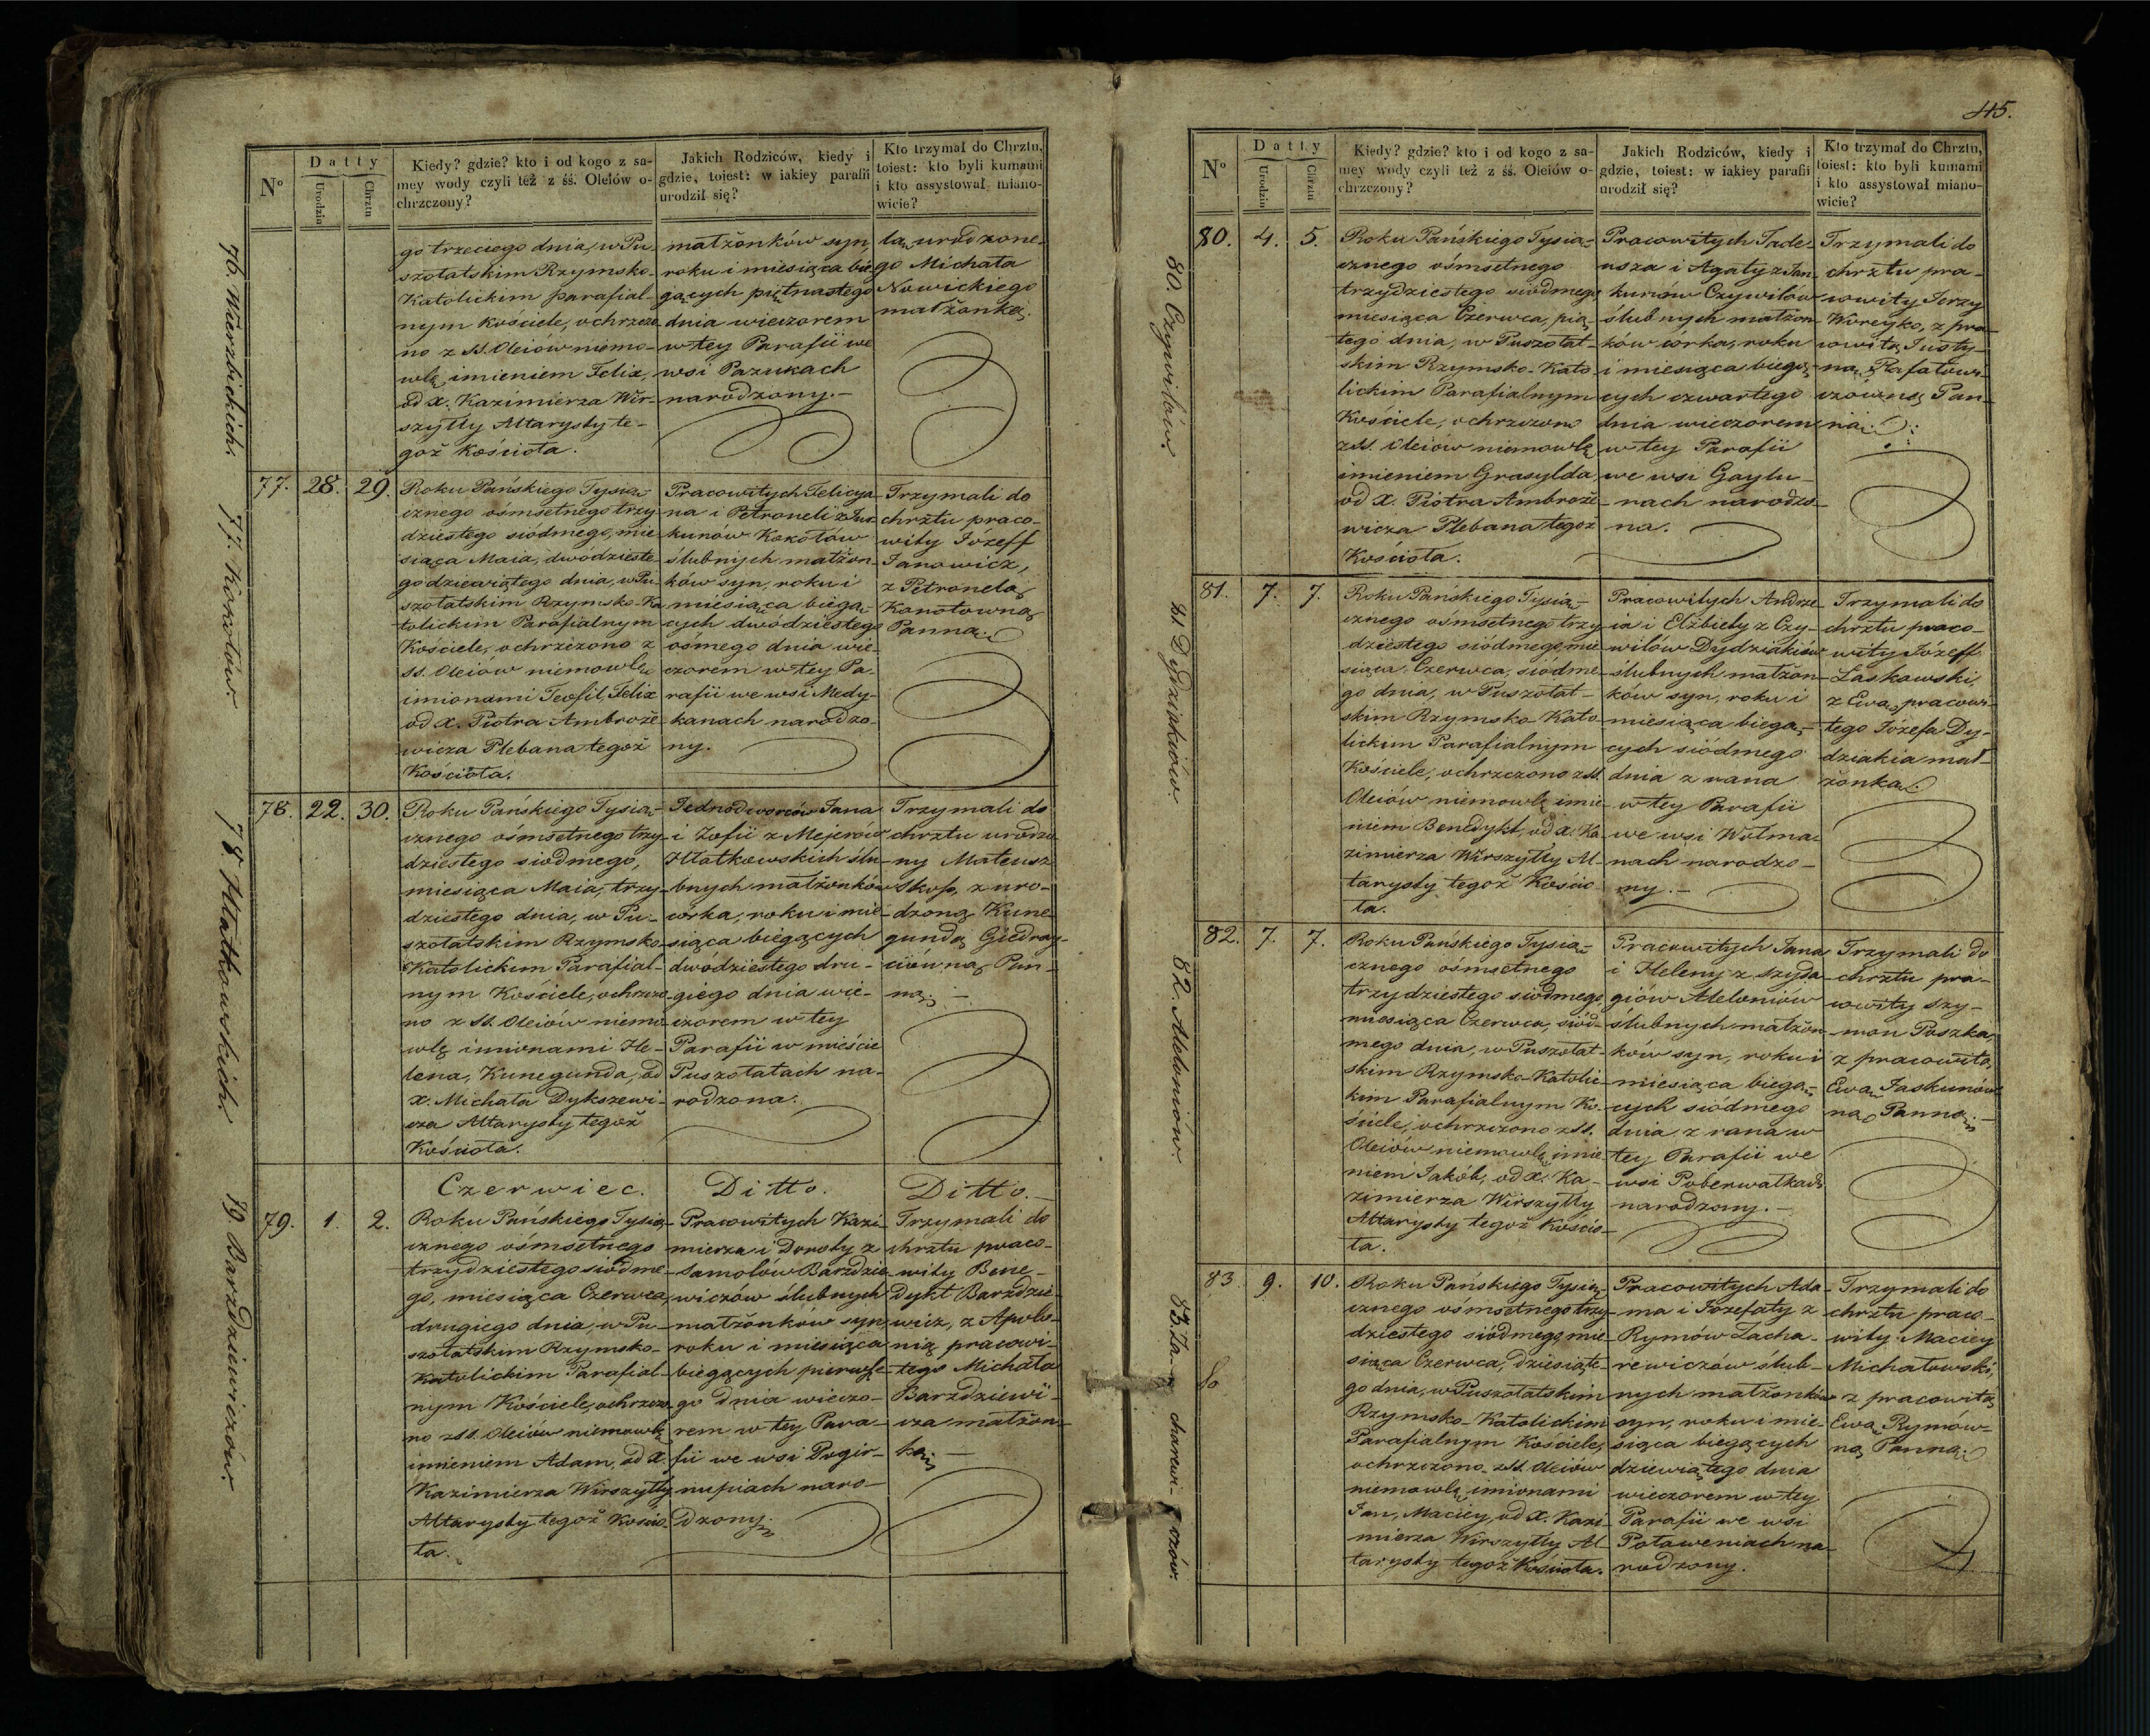 No
Datty
Urodzin
Chrztu
Kiedy? gdzie? kto i od kogo z sa-
mey wody czyli też z śś. Oleiów o-
chrzczony?
Jakich Rodziców, kiedy i
gdzie, toiest: w iakiey parafii
urodził się?
Kto trzymał do Chrztu,
toiest: kto byli kumami
i kto assystował miano-
wicie?
76. Wierzbickich.
go trzeciego dnia, w Pu-
szołatskim Rzymsko-
Katolickim parafial-
nym Kościele, ochrzczo-
no z SS. Oleiów niemo-
wlę imieniem Felix,
od X. Kazimierza Wir-
szyłły Altarysty te-
goż Kościoła.
małżonków syn,
roku i miesiąca bie-
gących piętnastego
dnia wieczorem
w tey Parafii we
wsi Pazukach
narodzony.-
lą, urodzone-
go Michała
Nowickiego
małżonką.
77. Kokotów
77. 28. 29.
Roku Pańskiego Tysią-
cznego ośmsetnego trzy-
dziestego siódmego, mie-
siąca Maia, dwódzieste-
go dziewiątego dnia, w Pu-
szołatskim Rzymsko-Ka-
tolickim Parafialnym
Kościele, ochrzczono z
SS. Oleiów niemowlę
imionami Teofil, Felix
od X. Piotra Ambroże-
wicza Plebana tegoż
Kościoła.
Pracowitych Felicya-
na i Petroneli z Jan-
kunów Kokotów
ślubnych małżon-
ków syn, roku i
miesiąca biegą-
cych dwódziestego
ósmego dnia wie-
czorem w tey Pa-
rafii we wsi Medy-
kanach narodzo-
ny.
Trzymali do
chrztu praco-
wity Józeff
Janowicz,
z Petronelą
Kanotowną
Panną.
78. Hłatkowskich.
78. 22. 30.
Roku Pańskiego Tysią-
cznego ośmsetnego trzy-
dziestego siódmego,
miesiąca Maia, trzy-
dziestego dnia, w Pu-
szołatskim Rzymsko-
Katolickim Parafial-
nym Kościele, ochrzczo-
no z SS. Oleiów niemo-
wlę imionami He-
lena, Kunegunda, od
X. Michała Dykszewi-
cza Altarysty tegoż
Kościoła.
Jednodworców Jana
i Zofii z Mejerów
Hłatkowskich ślu-
bnych małżonków
córka, roku i mie-
siąca biegących
dwódziestego dru-
giego dnia wie-
czorem w tey
Parafii w mieście
Puszołatach na-
rodzona.
Trzymali do
chrztu urodzo-
ny Mateusz
Skofs, z uro-
dzoną Kune-
gundą Giedray-
ciowną Pan-
ną. -
79. Barździewiczów.
Czerwiec. Ditto. Ditto.-
79. 1. 2.
Roku Pańskiego Tysią-
cznego ośmsetnego
trzydziestego siódme-
go, miesiąca Czerwca,
drugiego dnia, w Pu-
szołatskim Rzymsko-
Katolickim Parafial-
nym Kościele, ochrzczo-
no z SS. Oleiów niemowlę
imieniem Adam, od X.
Kazimierza Wirszyłły
Altarysty tegoż Kościo-
ła.
Pracowitych Kazi-
mierza i Doroty z
Samolów Barździe-
wiczów ślubnych
małżonków syn,
roku i miesiąca
biegących pierwsze-
go dnia wieczo-
rem w tey Para-
fii we wsi Pogir-
nupiach naro-
dzony.
Trzymali do
chrztu praco-
wity Bene-
dykt Barździe-
wicz, z Apolo-
nią pracowi-
tego Michała
Barździewi-
cza małżon-
ką. -
45.
No
Datty
Urodzin
Chrztu
Kiedy? gdzie? kto i od kogo z sa-
mey wody czyli też z śś. Oleiów o-
chrzczony?
Jakich Rodziców, kiedy i
gdzie, toiest: w iakiey parafii
urodził się?
Kto trzymał do Chrztu,
toiest: kto byli kumami
i kto assystował miano-
wicie?
80. Czywilów.
80. 4. 5.
Roku Pańskiego Tysią-
cznego ośmsetnego
trzydziestego siódmego
miesiąca Czerwca, pią-
tego dnia, w Puszołat-
skim Rzymsko-Kato-
lickim Parafialnym
Kościele, ochrzczono
z SS. Oleiów niemowlę
imieniem Grasylda,
od X. Piotra Ambroże-
wicza Plebana tegoż
Kościoła.
Pracowitych Tade-
usza i Agaty z Jan-
kunów Czywilów
ślubnych małżon-
ków córka, roku
i miesiąca biegą-
cych czwartego
dnia wieczorem
w tey Parafii
we wsi Gaylu-
nach narodzo-
na.
Trzymali do
chrztu pra-
cowity Jerzy
Woreyko, z pra-
cowitą Justy-
ną Rafałowi-
czówną Pan-
ną.
81. Dydziakiów.
81. 7. 7.
Roku Pańskiego Tysią-
cznego ośmsetnego trzy-
dziestego siódmego, mie-
siąca Czerwca, siódme-
go dnia, w Puszołat-
skim Rzymsko-Kato-
lickim Parafialnym
Kościele, ochrzczono z SS.
Oleiów niemowlę imie-
niem Benedykt, od X. Ka-
zimierza Wirszyłły Al-
tarysty tegoż Kościo-
ła.
Pracowitych Andrze-
ia i Elżbiety z Czy-
wilów Dydziakiów
ślubnych małżon-
ków syn, roku i
miesiąca biegą-
cych siódmego
dnia z rana
w tey Parafii
we wsi Wolma-
nach narodzo-
ny.-
Trzymali do
chrztu praco-
wity Jozeff
Laskowski,
z Ewą pracowi-
tego Józefa Dy-
dziakia mał-
żonką.
82. Adoloniów.
82. 7. 7.
Roku Pańskiego Tysią-
cznego ośmsetnego
trzydziestego siódmego,
miesiąca Czerwca, siód-
mego dnia, w Puszołat-
skim Rzymsko-Katolic-
kim Parafialnym Ko-
ściele, ochrzczono z SS.
Oleiów niemowlę imie-
niem Jakób, od X. Ka-
zimierza Wirszyłły
Altarysty tegoż Kościo-
ła.
Pracowitych Jana
i Heleny z Szyda-
giów
ślubnych małżon-
ków syn, roku i
miesiąca biegą-
cych siódmego
dnia z rana w
tey Parafii we
wsi Poberwałkach
narodzony.-
Trzymali do
chrztu pra-
cowity Szy-
mon Poszka,
z pracowitą
Ewą Jaskunów-
ną Panną.-
83. Za- charewi- czów.
83. 9. 10.
80
Roku Pańskiego Tysią-
cznego ośmsetnego trzy-
dziestego siódmego, mie-
siąca Czerwca, dziesiąte-
go dnia, w Puszołatskim
Rzymsko-Katolickim
Parafialnym Kościele,
ochrzczono z SS. Oleiów
niemowlę imionami
Jan, Maciey, od X. Kazi-
mierza Wirszyłły Al-
tarysty tegoż Kościoła.
Pracowitych Ada-
ma i Józefaty z
Rymów Zacha-
rewiczów ślub-
nych małżonków
syn, roku i mie-
siąca biegących
dziewiątego dnia
wieczorem w tey
Parafii we wsi
Poławeniach na-
rodzony.
Trzymali do
chrztu praco-
wity Maciey
Michałowski,
z pracowitą
Ewą Rymów-
ną Panną.